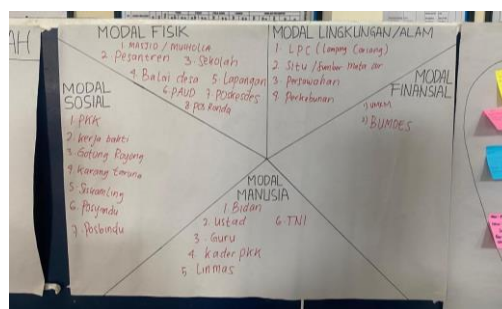 AH
MODAL FISIK
1. MASJID / MUSHOLLA
2. Pesantren 3. Sekolah
4. Balai desa 5. Lapangan
6. PAUD 7. Poskesdes
8. pos Ronda
MODAL LINGKUNGAN/ALAM
1. LPC (Lampung Carang)
2. Situ / Sumber mata air
3. Persawahan
4. Perkebunan
MODAL
FINANSIAL
1) UMKM
2) BUMDES
MODAL
SOSIAL
1. PKK
2. kerja bakti
3. Gotong Royong
4. Karang taruna
5. Siskamling
6. Posyandu
7. Posbindu
MODAL
MANUSIA
1. Bidan
2. Ustad 6. TNI
3. Guru
4. kader PKK
5 Linmas